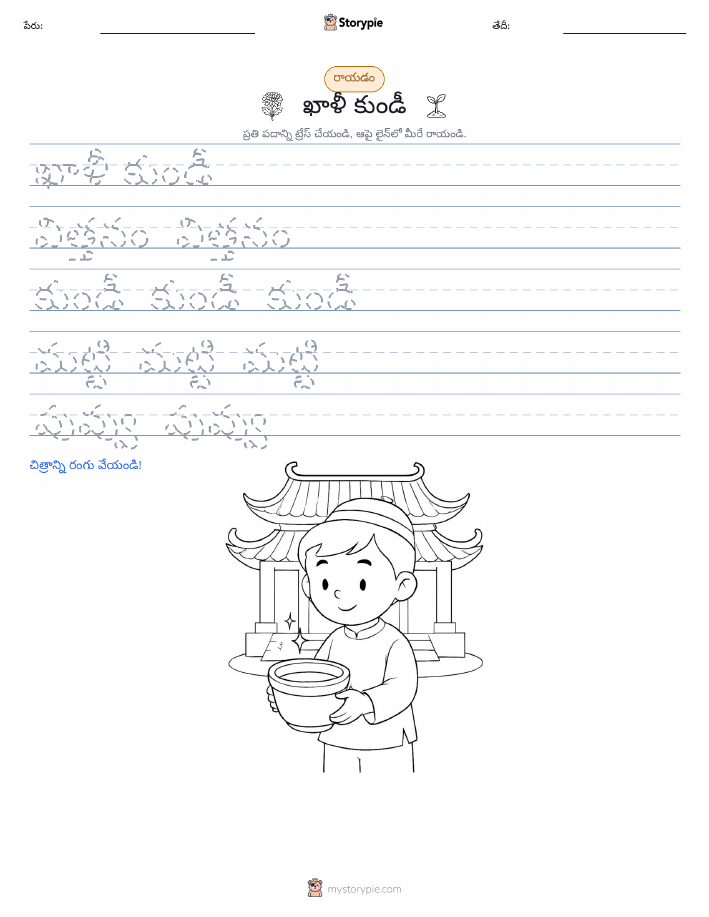 పేరు:
Storypie
తేదీ:
రాయడం
ఖాళీ కుండీ
ప్రతి పదాన్ని ట్రేస్ చేయండి, ఆపై లైన్‌లో మీరే రాయండి.
ఖాళీ కుండీ
విత్తనం విత్తనం
కుండీ కుండీ కుండీ
మట్టి మట్టి మట్టి
పువ్వు పువ్వు
చిత్రాన్ని రంగు వేయండి!
mystorypie.com